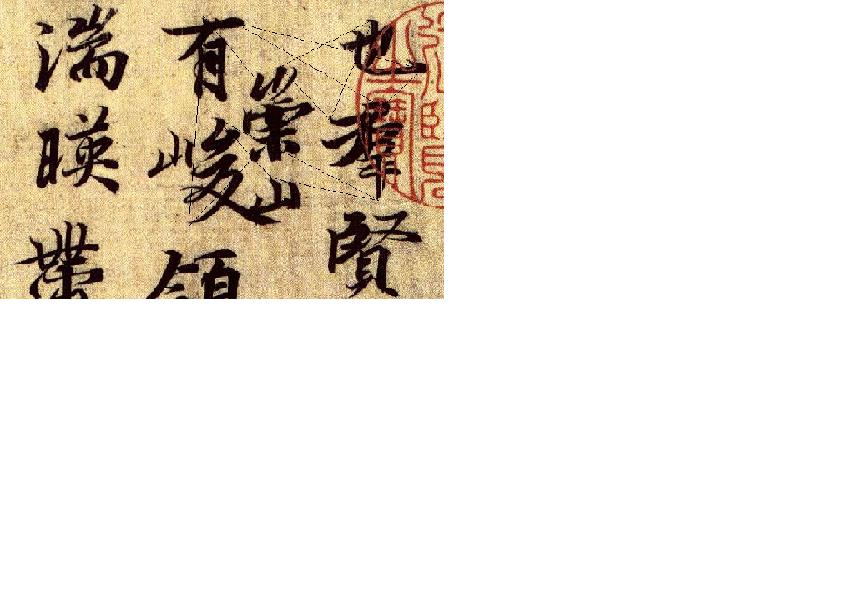 也羣賢
崇山
有峻領
湍暎帶